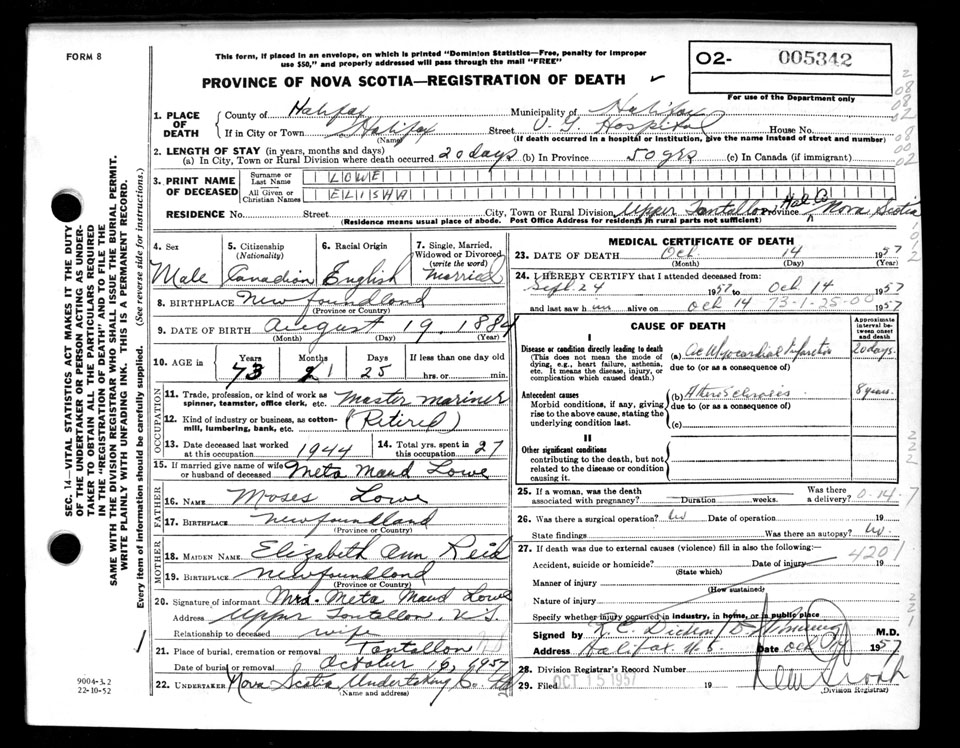 FORM 8
This form, if placed in an envelope, on which is printed "Dominion Statistics—Free, penalty for improper
use $50," and properly addressed will pass through the mail "FREE"
PROVINCE OF NOVA SCOTIA—REGISTRATION OF DEATH
O2- 005342
For use of the Department only
1. PLACE OF DEATH
County of Halifax Municipality of Halifax
If in City or Town Halifax Street V. G. Hospital House No.
(Name) (If death occurred in a hospital or institution, give the name instead of street and number)
2. LENGTH OF STAY (in years, months and days)
(a) In City, Town or Rural Division where death occurred 20 days (b) In Province 50 yrs (c) In Canada (if immigrant)
3. PRINT NAME OF DECEASED
Surname or Last Name LOWE
All Given or Christian Names ELISHA
RESIDENCE No. Street City, Town or Rural Division Upper Tantallon Hal Co Province Nova Scotia
(Residence means usual place of abode. Post Office Address for residents in rural parts not sufficient)
4. Sex 5. Citizenship (Nationality) 6. Racial Origin 7. Single, Married, Widowed or Divorced (write the word)
Male Canadian English married
8. BIRTHPLACE Newfoundland
(Province or Country)
9. DATE OF BIRTH August 19, 1884
(Month) (Day) (Year)
10. AGE IN Years Months Days If less than one day old
73 1 25 hrs. or min.
OCCUPATION
11. Trade, profession, or kind of work as spinner, teamster, office clerk, etc. Master mariner
12. Kind of industry or business, as cotton-mill, lumbering, bank, etc. (Retired)
13. Date deceased last worked at this occupation 1944 14. Total yrs. spent in this occupation 27
15. If married give name of wife or husband of deceased Meta Maud Lowe
FATHER
16. NAME Moses Lowe
17. BIRTHPLACE Newfoundland
(Province or Country)
MOTHER
18. MAIDEN NAME Elizabeth Ann Reid
19. BIRTHPLACE Newfoundland
(Province or Country)
20. Signature of informant Mrs. Meta Maud Lowe
Address Upper Tantallon, N.S.
Relationship to deceased wife
21. Place of burial, cremation or removal Tantallon N.S
Date of burial or removal October 16, 1957
22. UNDERTAKER Nova Scotia Undertaking Co. Ltd
(Name and address)
MEDICAL CERTIFICATE OF DEATH
23. DATE OF DEATH Oct. 14 1957
(Month) (Day) (Year)
24. I HEREBY CERTIFY that I attended deceased from:
Sept. 24 1957 to Oct 14 1957
and last saw him alive on Oct 14 73-1-25-00 1957
CAUSE OF DEATH
Approximate interval between onset and death
I
Disease or condition directly leading to death (a) Ac Myocardial Infarction 20 days.
(This does not mean the mode of dying, e.g., heart failure, asthenia, etc. It means the disease, injury, or complication which caused death.)
due to (or as a consequence of)
Antecedent causes (b) Atherosclerosis 8 years.
Morbid conditions, if any, giving rise to the above cause, stating the underlying condition last.
due to (or as a consequence of)
(c)
II
Other significant conditions
contributing to the death, but not related to the disease or condition causing it.
25. If a woman, was the death associated with pregnancy? Duration weeks. Was there a delivery? 0-14-7
26. Was there a surgical operation? No Date of operation 19
State findings Was there an autopsy? No.
27. If death was due to external causes (violence) fill in also the following:—
4201
Accident, suicide or homicide? Date of injury 19
(State which)
Manner of injury
(How sustained)
Nature of injury
Specify whether injury occurred in industry, in home, or in public place
Signed by M.D.
Address Halifax N.S. Date Oct 1957
28. Division Registrar's Record Number
29. Filed OCT 15 1957 19
(Division Registrar)
SEC. 14—VITAL STATISTICS ACT MAKES IT THE DUTY
OF THE UNDERTAKER OR PERSON ACTING AS UNDER-
TAKER TO OBTAIN ALL THE PARTICULARS REQUIRED
IN THE "REGISTRATION OF DEATH" AND TO FILE THE
SAME WITH THE DIVISION REGISTRAR WHO SHALL ISSUE THE BURIAL PERMIT.
WRITE PLAINLY WITH UNFADING INK. THIS IS A PERMANENT RECORD.
Every item of information should be carefully supplied. (See reverse side for instructions.)
9004-3.2
22-10-52